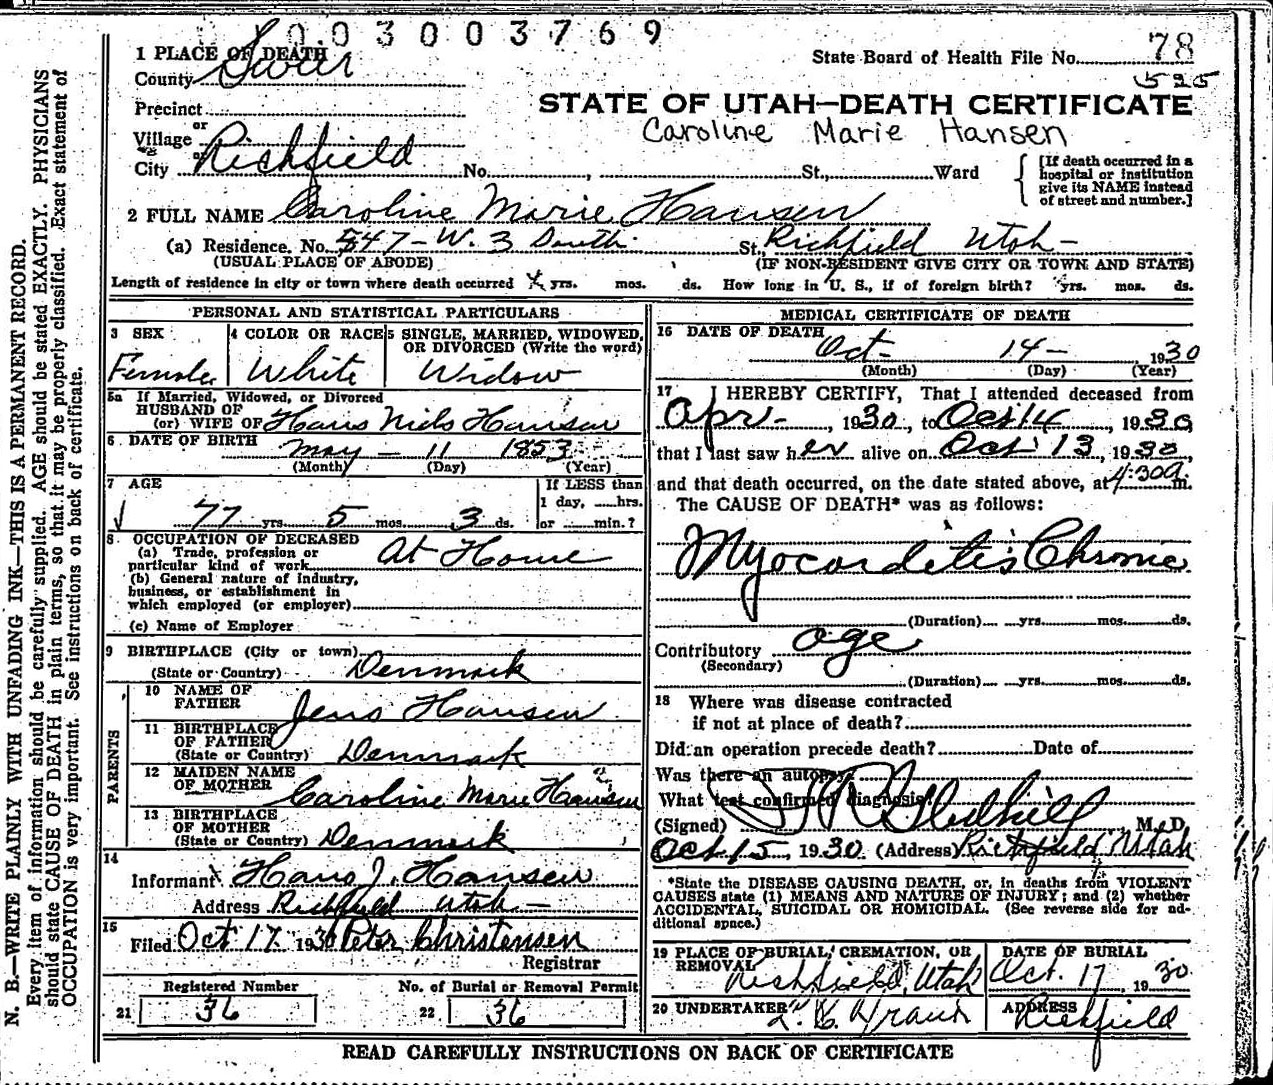 003003769
1 PLACE OF DEATH
State Board of Health File No. 78
County Sevier
525
Precinct
STATE OF UTAH—DEATH CERTIFICATE
or
Village
Caroline Marie Hansen
or
City Richfield No. , St., Ward
[If death occurred in a hospital or institution give its NAME instead of street and number.]
2 FULL NAME Caroline Marie Hansen
(a) Residence. No. 547-W. 3 South. St, Richfield Utah-
(USUAL PLACE OF ABODE) (IF NON-RESIDENT GIVE CITY OR TOWN AND STATE)
Length of residence in city or town where death occurred yrs. mos. ds. How long in U. S., if of foreign birth? yrs. mos. ds.
PERSONAL AND STATISTICAL PARTICULARS
3 SEX
Female
4 COLOR OR RACE
White
5 SINGLE, MARRIED, WIDOWED,
OR DIVORCED (Write the word)
Widow
5a If Married, Widowed, or Divorced
HUSBAND OF
(or) WIFE OF Hans Niels Hansen
6 DATE OF BIRTH May - 11 1853
(Month) (Day) (Year)
7 AGE
77 yrs 5 mos. 3 ds.
If LESS than
1 day, hrs.
or min.?
8 OCCUPATION OF DECEASED
(a) Trade, profession or
particular kind of work At Home
(b) General nature of industry,
business, or establishment in
which employed (or employer)
(c) Name of Employer
9 BIRTHPLACE (City or town)
(State or Country) Denmark
PARENTS
10 NAME OF
FATHER Jens Hansen
11 BIRTHPLACE
OF FATHER
(State or Country) Denmark
12 MAIDEN NAME
OF MOTHER Caroline Marie Hansen ?
13 BIRTHPLACE
OF MOTHER
(State or Country) Denmark
14
Informant Hans J. Hansen
Address Richfield Utah-
15
Filed Oct 17 1930 Peter Christensen
Registrar
Registered Number
21 36
No. of Burial or Removal Permit
22 36
MEDICAL CERTIFICATE OF DEATH
16 DATE OF DEATH
Oct- 14- , 1930
(Month) (Day) (Year)
17 I HEREBY CERTIFY, That I attended deceased from
Apr- , 1930, to Oct 14 , 1930
that I last saw her alive on Oct 13, 1930,
and that death occurred, on the date stated above, at 4:30 a. m.
The CAUSE OF DEATH* was as follows:
Myocarditis Chronic
(Duration) yrs. mos. ds.
Contributory age
(Secondary)
(Duration) yrs. mos. ds.
18 Where was disease contracted
if not at place of death?
Did an operation precede death? Date of
Was there an autopsy
What test confirmed diagnosis?
(Signed) M. D.
Oct 15, 1930 (Address) Richfield Utah
*State the DISEASE CAUSING DEATH, or, in deaths from VIOLENT
CAUSES state (1) MEANS AND NATURE OF INJURY; and (2) whether
ACCIDENTAL, SUICIDAL OR HOMICIDAL. (See reverse side for ad-
ditional space.)
19 PLACE OF BURIAL, CREMATION, OR
REMOVAL
Richfield, Utah
DATE OF BURIAL
Oct. 17, 1930
20 UNDERTAKER
ADDRESS
Richfield
READ CAREFULLY INSTRUCTIONS ON BACK OF CERTIFICATE
N. B.—WRITE PLAINLY WITH UNFADING INK—THIS IS A PERMANENT RECORD.
Every item of information should be carefully supplied. AGE should be stated EXACTLY. PHYSICIANS
should state CAUSE OF DEATH in plain terms, so that it may be properly classified. Exact statement of
OCCUPATION is very important. See instructions on back of certificate.